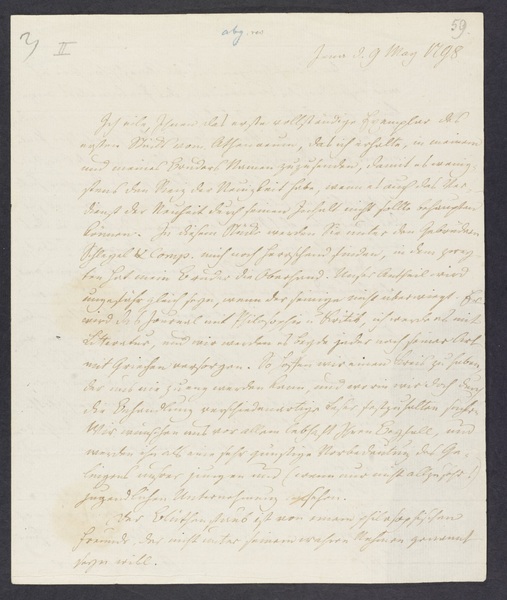 59.
3 II abg. m
Jena d. 9 May 1798
Ich eile, Ihnen das erste vollständige Exemplar des
ersten Stücks vom Athenaeum, das ich erhalte, in meinem
und meines Bruders Namen zuzusenden, damit es wenig-
stens den Reiz der Neuigkeit habe, wenn es auch das Ver-
dienst der Neuheit durch seinen Inhalt nicht sollte behaupten
können. In diesem Stücke werden Sie unter den Gebrüdern
Schlegel & Comp. mich noch herrschend finden, in dem zwey-
ten hat mein Bruder die Oberhand. Unser Antheil wird
ungefähr gleich seyn, wenn der seinige nicht überwiegt. Er
wird das Journal mit Philosophie u Kritik, ich werde es mit
Litteratur, und wir werden es beyde jeder nach seiner Art
mit Griechen versorgen. So hoffen wir einen Kreis zu haben,
der uns nie zu eng werden kann, und worin wir doch durch
die Behandlung verschiedenartige Leser festzuhalten suchen.
Wir wünschen uns vor allem lebhaft Ihren Beyfall, und
werden ihn als eine sehr günstige Vorbedeutung des Ge-
lingens unsrer jungen und (wenn nur nicht allzusehr!)
jugendlichen Unternehmung ansehen.
Der Blüthenstaub ist von einem philosophischen
Freunde, der nicht unter seinem wahren Nahmen genannt
seyn will.